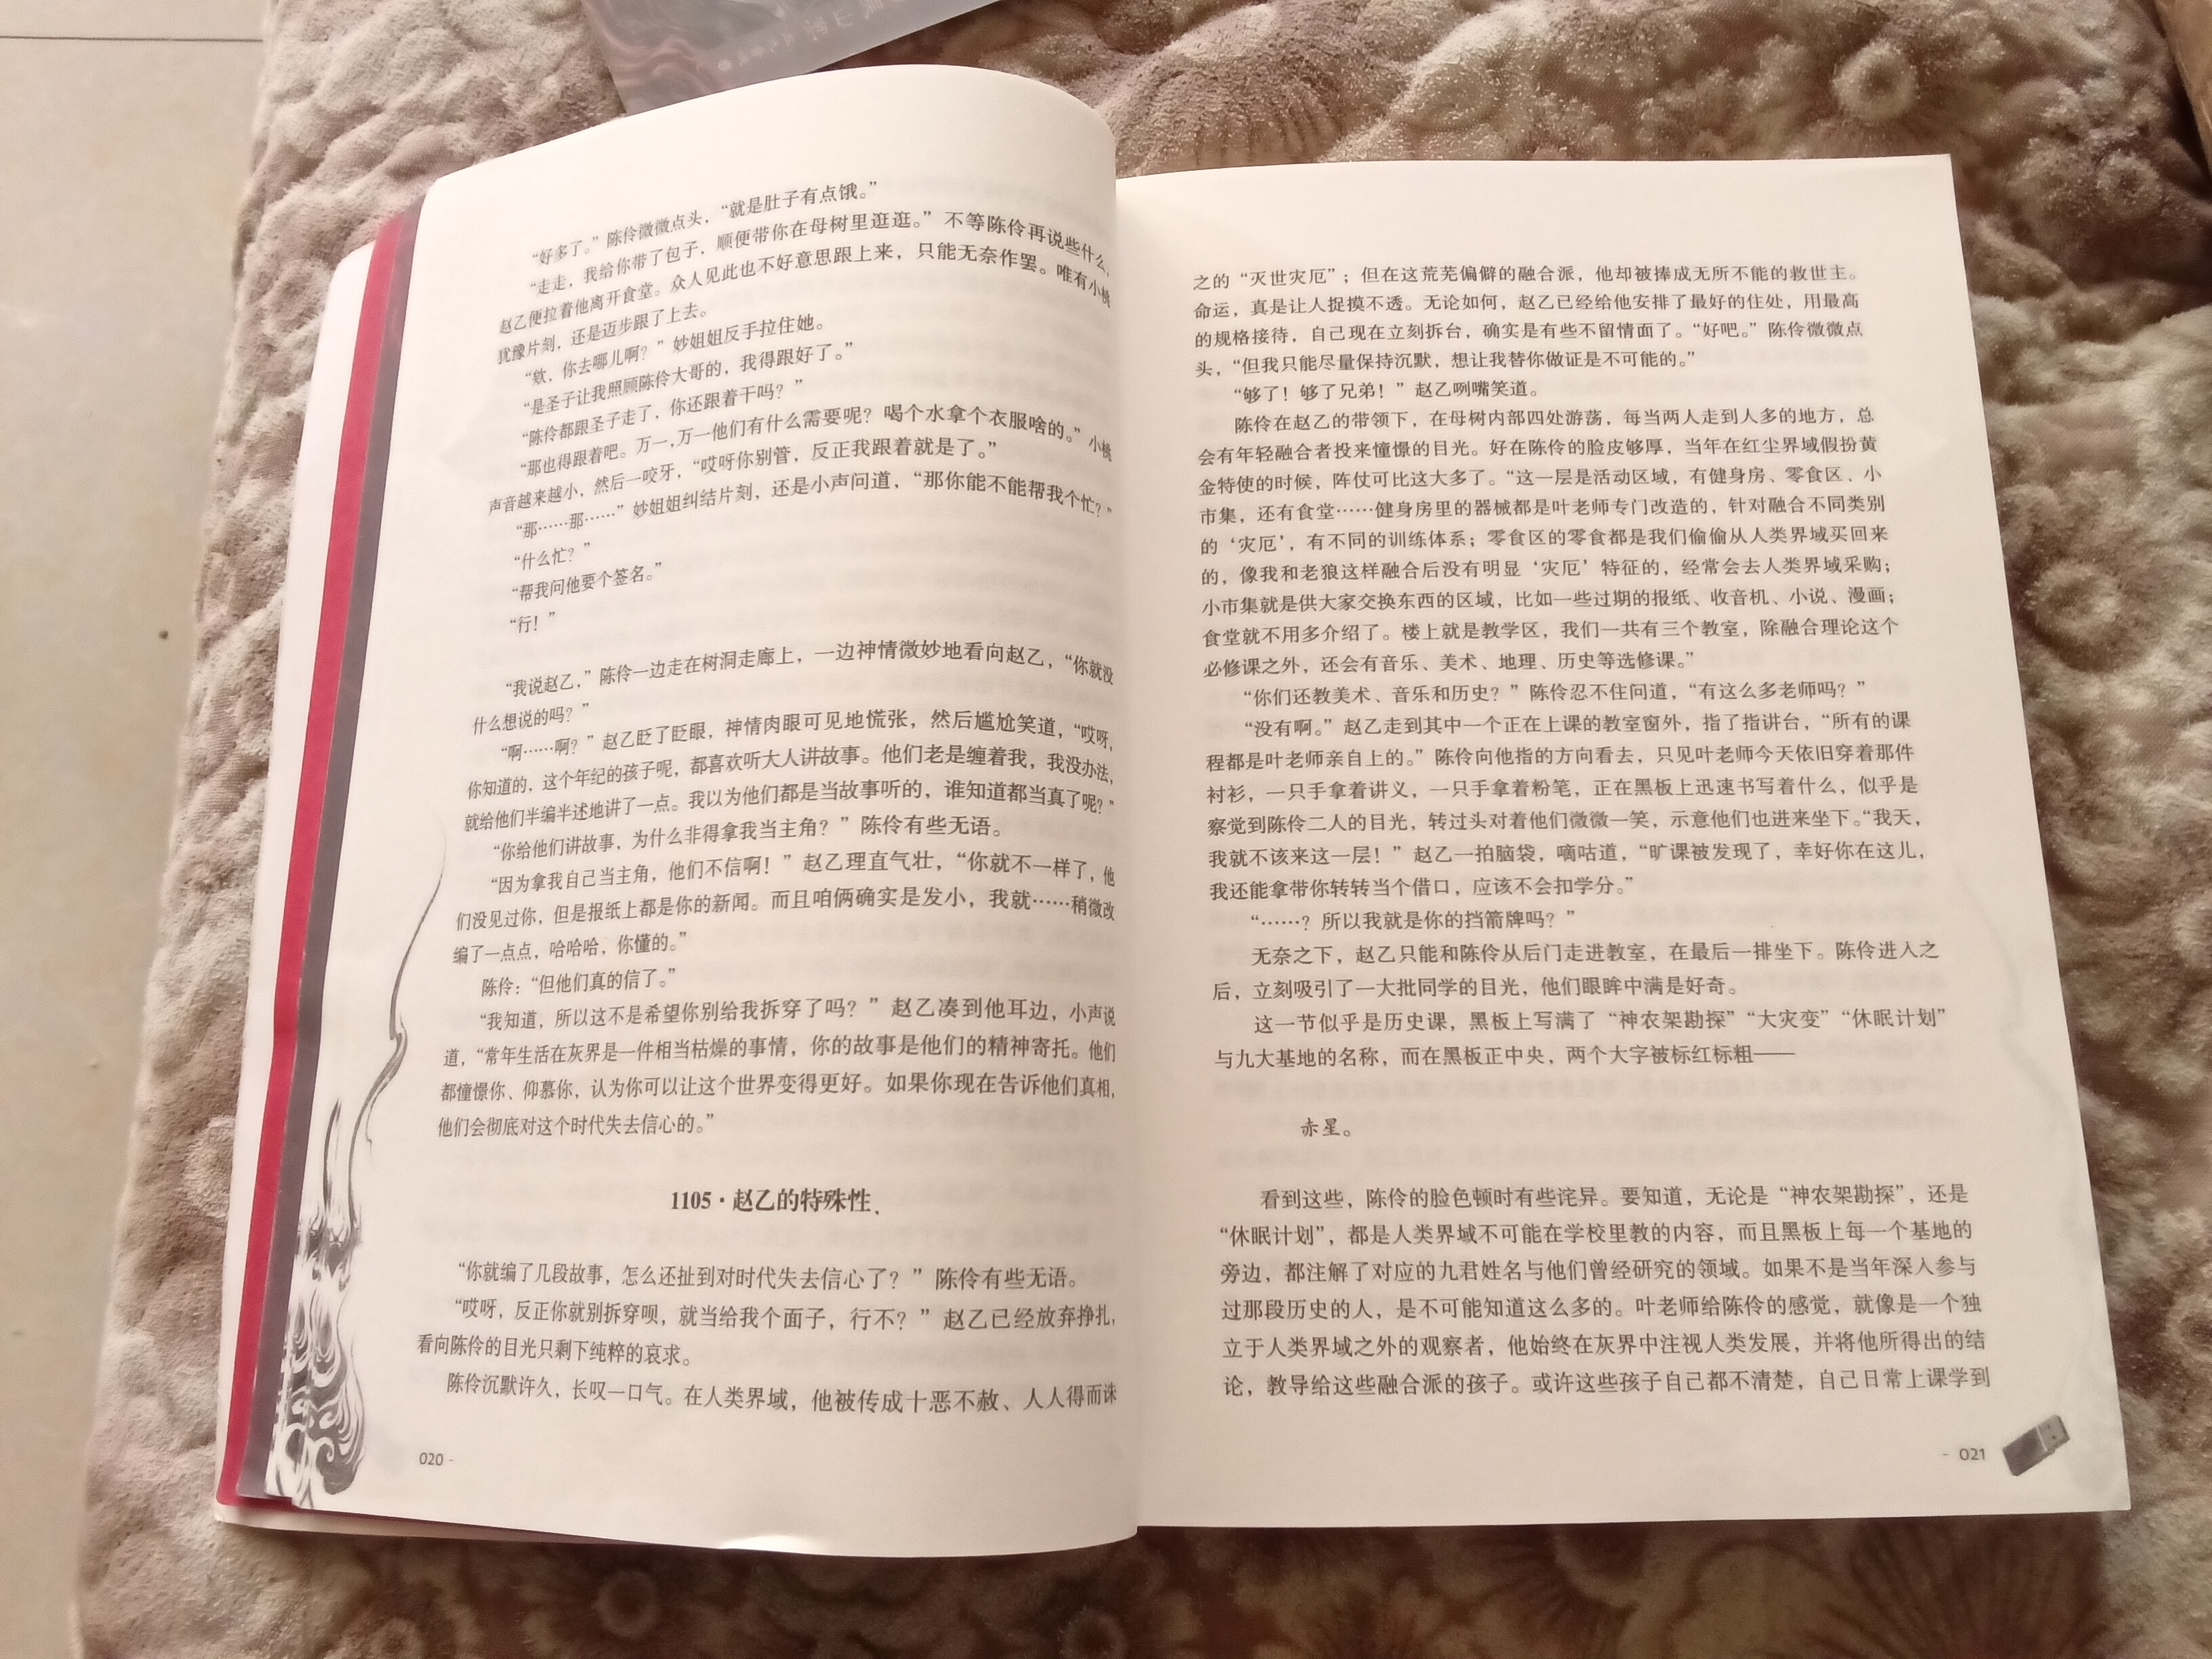 “好多了。”陈伶微微点头，“就是肚子有点饿。”
“走走，我给你带了包子，顺便带你在母树里逛逛。”不等陈伶再说些什么，
赵乙便拉着他离开食堂。众人见此也不好意思跟上来，只能无奈作罢。唯有小桃
犹豫片刻，还是迈步跟了上去。
“欸，你去哪儿啊？”妙姐姐反手拉住她。
“是圣子让我照顾陈伶大哥的，我得跟好了。”
“陈伶都跟圣子走了，你还跟着干吗？”
“那也得跟着吧。万一，万一他们有什么需要呢？喝个水拿个衣服啥的。”小桃
声音越来越小，然后一咬牙，“哎呀你别管，反正我跟着就是了。”
“那……那……”妙姐姐纠结片刻，还是小声问道，“那你能不能帮我个忙？”
“什么忙？”
“帮我问他要个签名。”
“行！”
“我说赵乙，”陈伶一边走在树洞走廊上，一边神情微妙地看向赵乙，“你就没
什么想说的吗？”
“啊……啊？”赵乙眨了眨眼，神情肉眼可见地慌张，然后尴尬笑道，“哎呀，
你知道的，这个年纪的孩子呢，都喜欢听大人讲故事。他们老是缠着我，我没办法，
就给他们半编半述地讲了一点。我以为他们都是当故事听的，谁知道都当真了呢？”
“你给他们讲故事，为什么非得拿我当主角？”陈伶有些无语。
“因为拿我自己当主角，他们不信啊！”赵乙理直气壮，“你就不一样了，他
们没见过你，但是报纸上都是你的新闻。而且咱俩确实是发小，我就……稍微改
编了一点点，哈哈哈，你懂的。”
陈伶：“但他们真的信了。”
“我知道，所以这不是希望你别给我拆穿了吗？”赵乙凑到他耳边，小声说
道，“常年生活在灰界是一件相当枯燥的事情，你的故事是他们的精神寄托。他们
都憧憬你、仰慕你，认为你可以让这个世界变得更好。如果你现在告诉他们真相，
他们会彻底对这个时代失去信心的。”
1105·赵乙的特殊性
“你就编了几段故事，怎么还扯到对时代失去信心了？”陈伶有些无语。
“哎呀，反正你就别拆穿呗，就当给我个面子，行不？”赵乙已经放弃挣扎，
看向陈伶的目光只剩下纯粹的哀求。
陈伶沉默许久，长叹一口气。在人类界域，他被传成十恶不赦、人人得而诛
020 -
之的“灭世灾厄”；但在这荒芜偏僻的融合派，他却被捧成无所不能的救世主。
命运，真是让人捉摸不透。无论如何，赵乙已经给他安排了最好的住处，用最高
的规格接待，自己现在立刻拆台，确实是有些不留情面了。“好吧。”陈伶微微点
头，“但我只能尽量保持沉默，想让我替你做证是不可能的。”
“够了！够了兄弟！”赵乙咧嘴笑道。
陈伶在赵乙的带领下，在母树内部四处游荡，每当两人走到人多的地方，总
会有年轻融合者投来憧憬的目光。好在陈伶的脸皮够厚，当年在红尘界域假扮黄
金特使的时候，阵仗可比这大多了。“这一层是活动区域，有健身房、零食区、小
市集，还有食堂……健身房里的器械都是叶老师专门改造的，针对融合不同类别
的‘灾厄’，有不同的训练体系；零食区的零食都是我们偷偷从人类界域买回来
的，像我和老狼这样融合后没有明显‘灾厄’特征的，经常会去人类界域采购；
小市集就是供大家交换东西的区域，比如一些过期的报纸、收音机、小说、漫画；
食堂就不用多介绍了。楼上就是教学区，我们一共有三个教室，除融合理论这个
必修课之外，还会有音乐、美术、地理、历史等选修课。”
“你们还教美术、音乐和历史？”陈伶忍不住问道，“有这么多老师吗？”
“没有啊。”赵乙走到其中一个正在上课的教室窗外，指了指讲台，“所有的课
程都是叶老师亲自上的。”陈伶向他指的方向看去，只见叶老师今天依旧穿着那件
衬衫，一只手拿着讲义，一只手拿着粉笔，正在黑板上迅速书写着什么，似乎是
察觉到陈伶二人的目光，转过头对着他们微微一笑，示意他们也进来坐下。“我天，
我就不该来这一层！”赵乙一拍脑袋，嘀咕道，“旷课被发现了，幸好你在这儿，
我还能拿带你转转当个借口，应该不会扣学分。”
“……？所以我就是你的挡箭牌吗？”
无奈之下，赵乙只能和陈伶从后门走进教室，在最后一排坐下。陈伶进入之
后，立刻吸引了一大批同学的目光，他们眼眸中满是好奇。
这一节似乎是历史课，黑板上写满了“神农架勘探”“大灾变”“休眠计划”
与九大基地的名称，而在黑板正中央，两个大字被标红标粗——
赤星。
看到这些，陈伶的脸色顿时有些诧异。要知道，无论是“神农架勘探”，还是
“休眠计划”，都是人类界域不可能在学校里教的内容，而且黑板上每一个基地的
旁边，都注解了对应的九君姓名与他们曾经研究的领域。如果不是当年深入参与
过那段历史的人，是不可能知道这么多的。叶老师给陈伶的感觉，就像是一个独
立于人类界域之外的观察者，他始终在灰界中注视人类发展，并将他所得出的结
论，教导给这些融合派的孩子。或许这些孩子自己都不清楚，自己日常上课学到
- 021